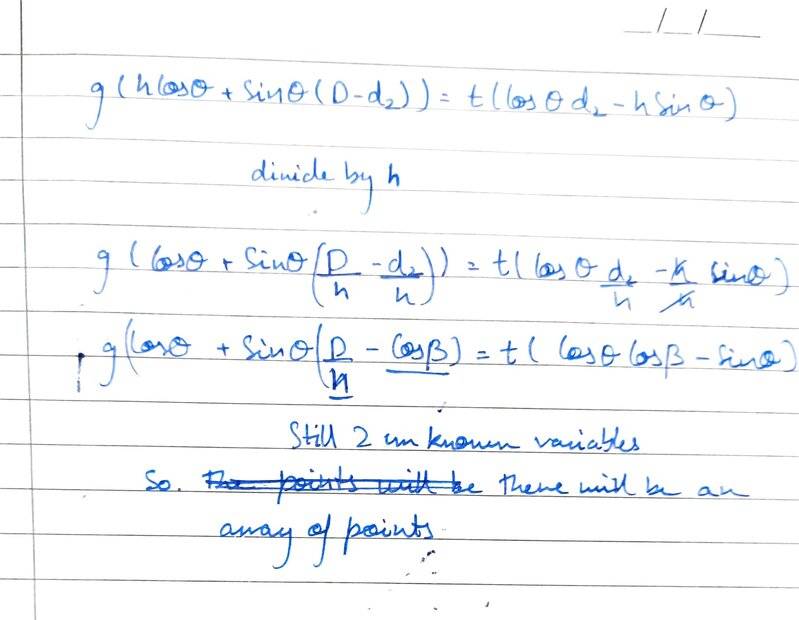 _/_/_
g(hcosθ + sinθ(D-d₂)) = t(cosθd₂-hsinθ)
divide by h
g(cosθ + sinθ(D/h - d₂/h)) = t(cosθ d₂/h - h/h sinθ)
g(cosθ + sinθ(D/h - cosβ) = t(cosθcosβ - sinθ)
Still 2 unknown variables
So. The points will be there will be an
array of points